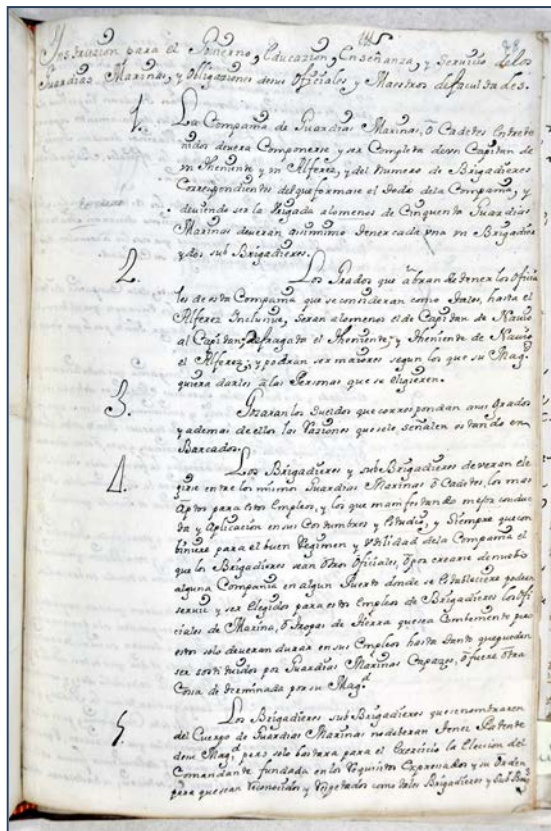 Instruczion para el Govierno, Educazion, Enseñanza, y Servicio de los
Guardias Marinas, y Obligaziones de sus Oficiales y Maestros de facultades.
1. La Compañia de Guardias Marinas, ô Cadetes Entrete
nidos devera Componerse y ser Completa de un Capitan de
vn Theniente y vn Alferez, y del Numero de Brigadieres
Correspondientes del que formare el todo de la Compañia, y
deviendo ser la Brigada alomenos de Cinquenta Guardias
Marinas deveran asimismo tener cada vna vn Brigadier
y dos sub Brigadieres.
2. Los Grados que abran de tener los oficia
les de esta Compañia que se consideran como tales, hasta el
Alferez Inclusive, seran alomenos el de Capitan de Navio
al Capitan, de fragata el Theniente, y Theniente de Navio
el Alferez, y podran ser maiores segun los que su Mag.d
quiera darles â las Personas que se eligieren.
3. Gozaran los sueldos que correspondan a sus Grados
y ademas de ellos las Raziones que se les señalen estando em
Barcados.
4. Los Brigadieres y sub Brigadieres deveran ele
girse entre los mismos Guardias Marinas ô Cadetes, los mas
Aptos para estos Empleos, y los que manifestando mejor conduc
ta y aplicacion en sus Costumbres y Estudio, y siempre que com
biniere para el buen Regimen y Vtilidad de la Compañia el
que los Brigadieres sean otros oficiales, ô por crearse de nuebo
alguna Compañia en algun Puerto donde se Establesciere podran
servir y ser Elegidos para estos Empleos de Brigadieres los ofi
ciales de Marina, ô tropas de tierra que sea Combeniente pues
estos solo deveran durar en sus Empleos hasta tanto que puedan
ser sostituidos por Guardias Marinas Capazes, ô fuere ôtra
Cosa determinada por su Mag.d
5. Los Brigadieres sub Brigadieres que se nombraren
del Cuerpo de Guardias Marinas no deberan tener Patente
de su Mag.d pues solo bastara para el Exercicio la Eleccion del
Comandante fundada en los requisitos Expresados y su orden
para que sean reconocidos y respetados como tales Brigadieres y sub Brig.s